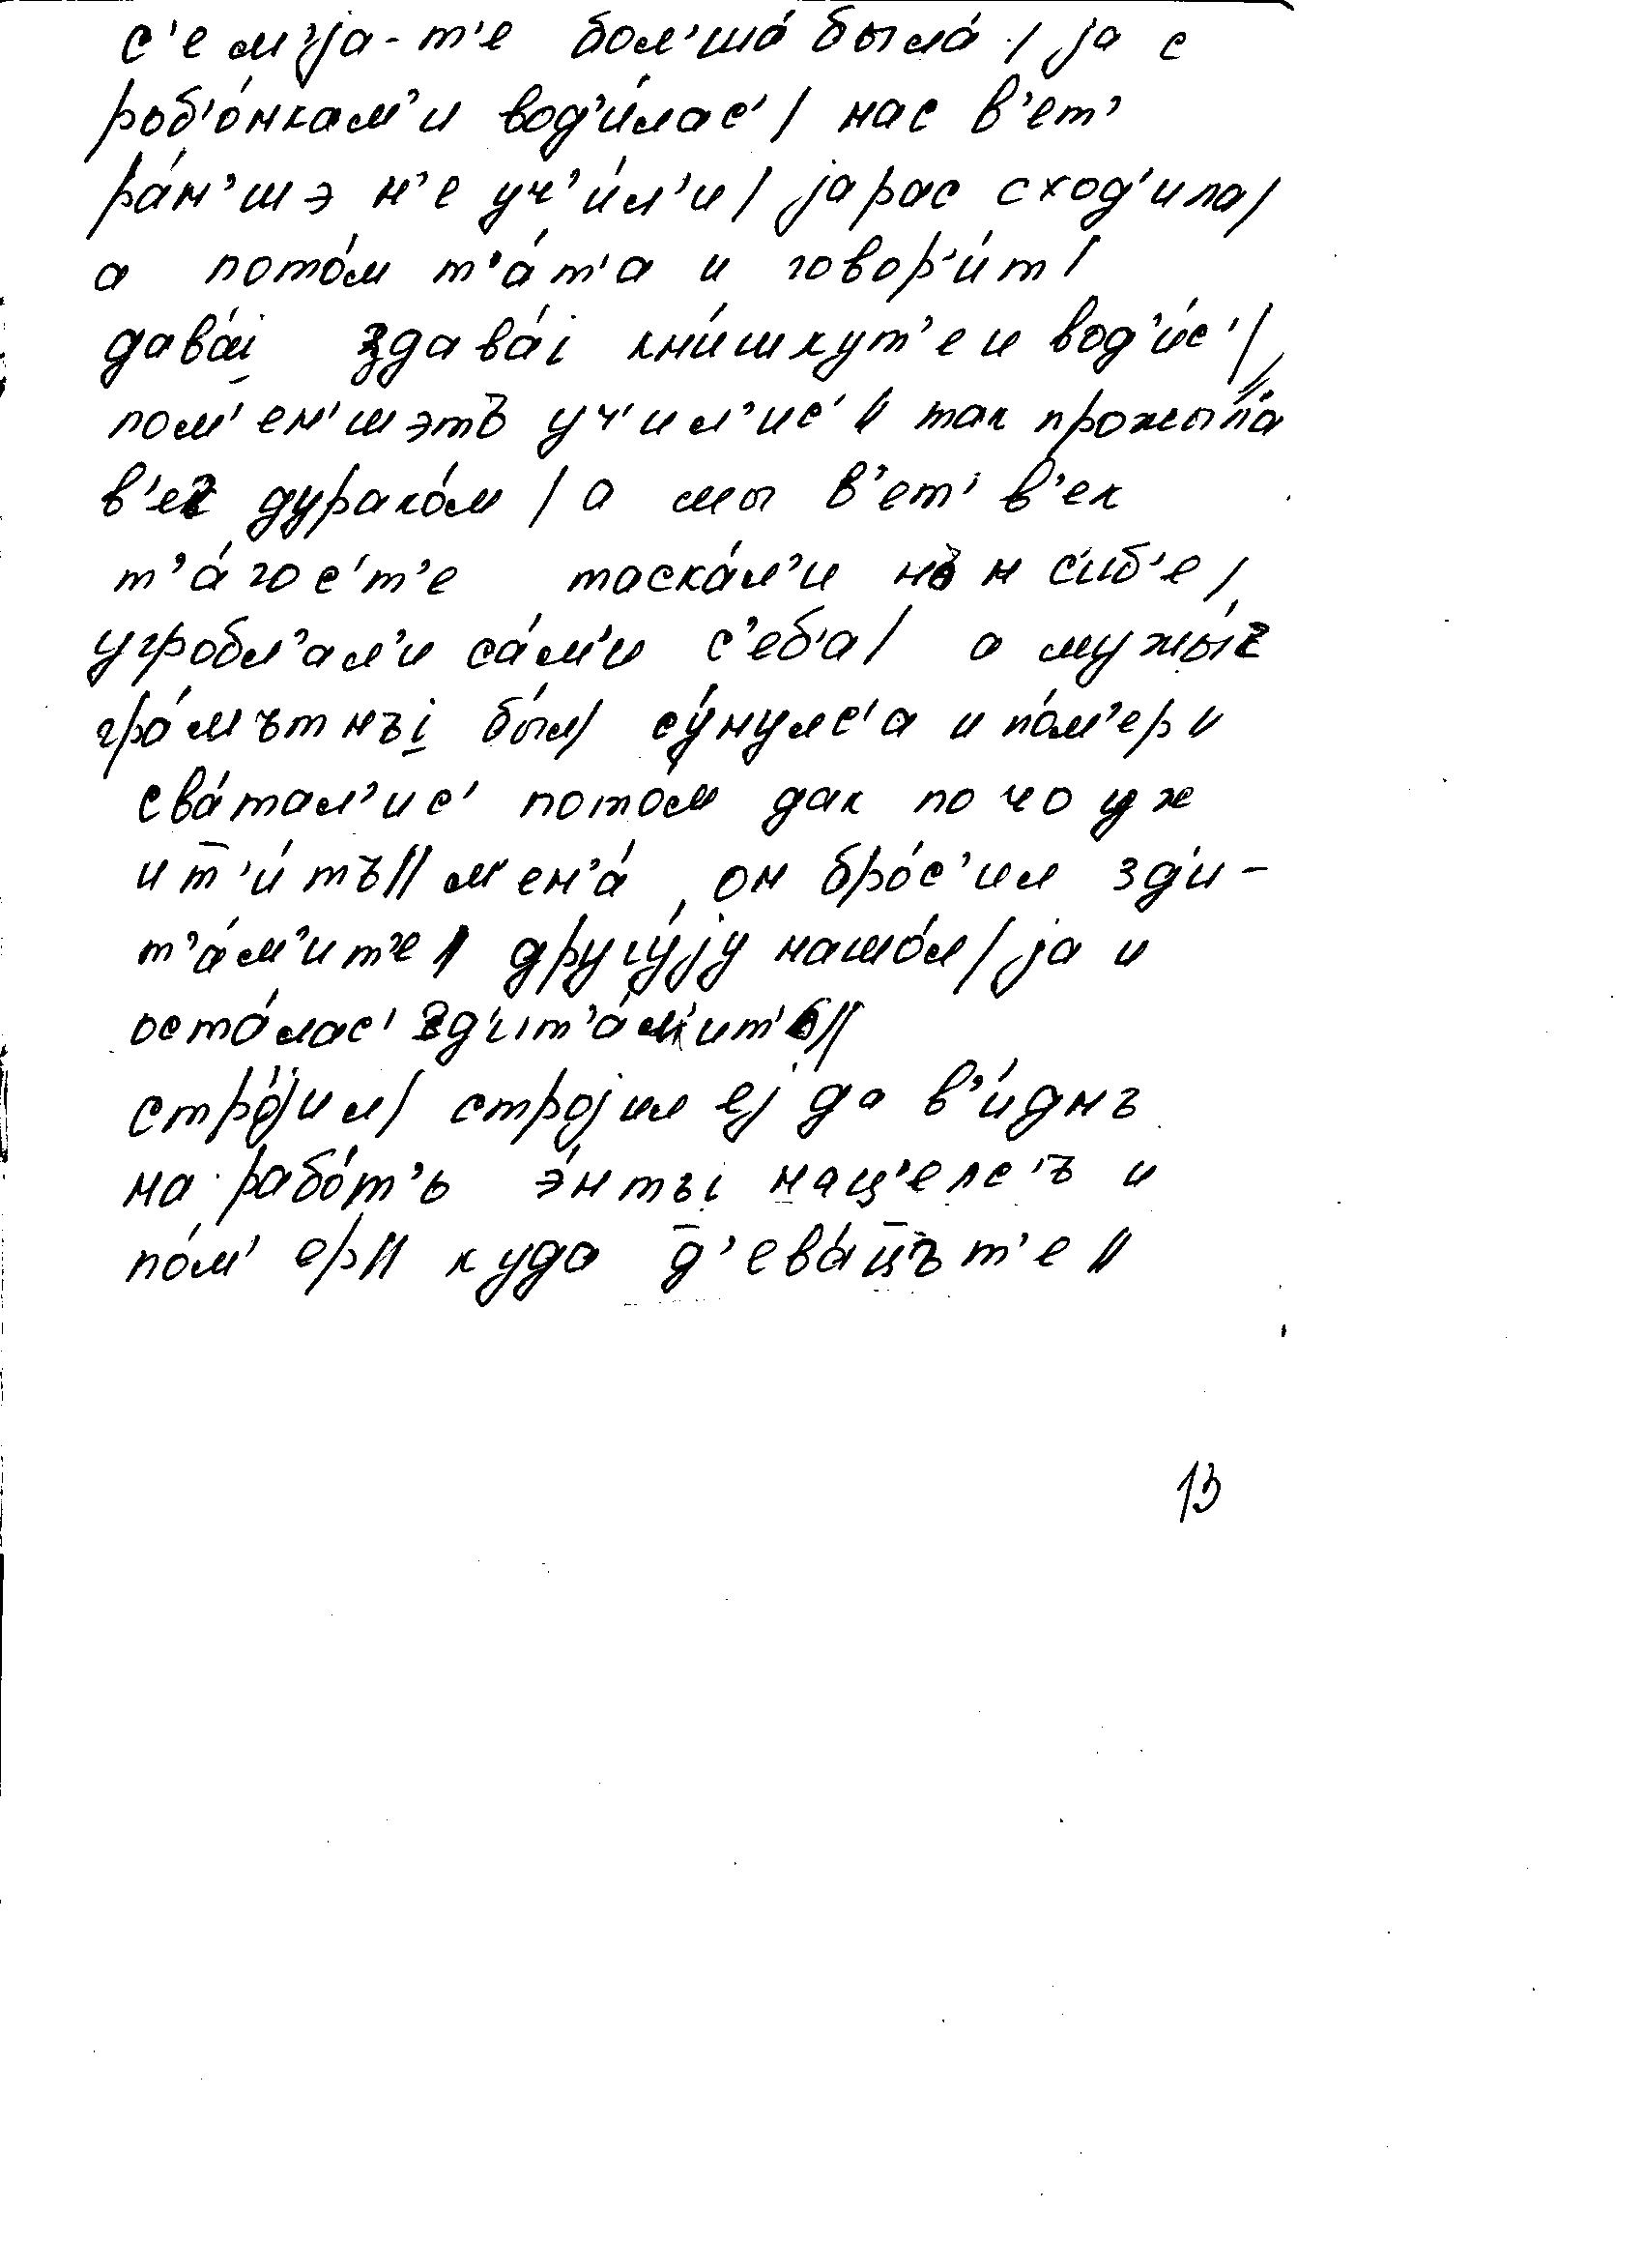 с'емjа-т'е бол'ша́ была́ / jа с
роб'о́нкам'и вод'и́лас' / нас в'ет'
ра́н'шэ н'е уч'и́л'и / jа рас сход'ила /
а пото́м т'а́т'а и говор'и́т /
дава́i здава́i кни́шкут'е и вод'и́с' //
пом'ен'шэтъ уч'ил'ис' // так прожыла́
в'ек дурако́м / а мы в'ет' в'ек
т'а́гос'т'е таска́л'и нъ н с'иб'е /
угробл'ал'и са́м'и с'еб'а / а мужы́к
гра́мътнъi бы́л / су́нулс'а и по́м'ер //
сва́тал'ис' пото́м дак по чо уж
ит̄'и́тъ // м'ен'а́ он бро́с'ил зд'и-
т'а́м'ит'е // другу́jу нашо́л / jа и
оста́лас' зд'ит'а́м'ит'ь //
стро́jил / строjил еj да в'и́днъ
на рабо́т'ь э́нтъi нац'елс'ъ и
по́м'ер // куда д̄'ева́ц̄ът'е //
13